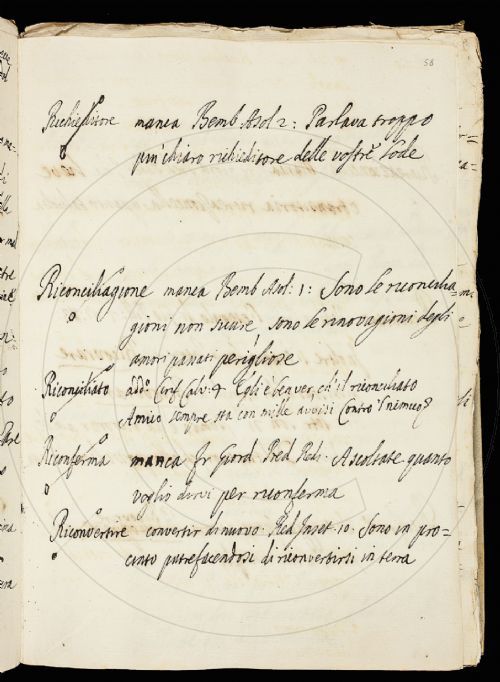 58
Richieditore manca Bemb Asol 2: Parlava troppo
piu chiaro richieditore delle vostre lode
Riconciliagione manca Bemb Asol: 1: Sono le riconcilia=
gioni non sicure, sono le rinovagioni degli
amori passati perigliose
Riconciliato add.o Ciriff Calv: 4 Egli è ben ver, ch'il riconciliato
Amico sempre sta con mille avvisi Contro
Riconferma manca Fr Giord Pred Red: Ascoltate quanto
voglio dirvi per riconferma
Riconvertire convertir di nuovo. Red Inset 10. Sono in pro=
cinto putrefacendosi di riconvertirsi in terra